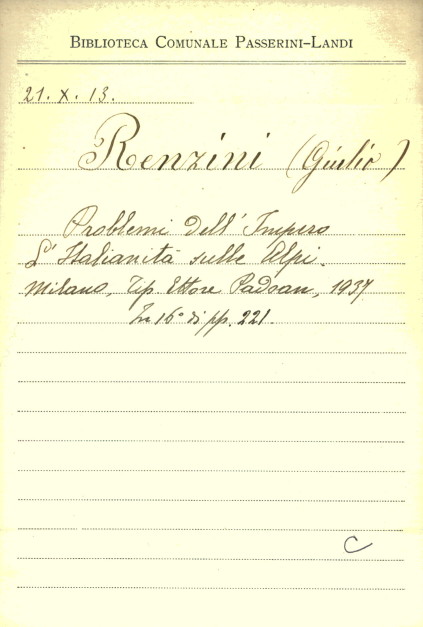 BIBLIOTECA COMUNALE PASSERINI-LANDI
21. X. 13.
Renzini (Giulio)
Problemi dell'Impero
L'Italianità sulle Alpi.
Milano, Tip. Ettore Padoan, 1937
In 16° di pp. 221.
C